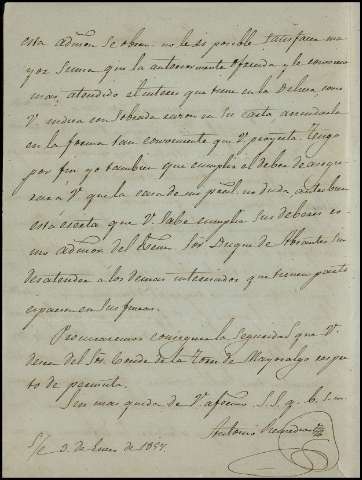 esta admon se obra no le es posible satisfacer ma
yor suma que la anteriormente ofrecida y le convenia
mas, atendido el interes que tiene en la Dehesa, como
V. indica con sobrada razon en su carta arrendarla
en la forma tan conveniente que V. proyecta. Tengo
por fin yo tambien que cumplir el deber de asegu
rar á V. que la casa de mi pral. no duda, antes bien
está cierta que V. sabe cumplir sus deberes co
mo admor del Exmo Sor Duque de Abrantes sin
desatender á los demas interesados que tienen parti
cipacion en sus fincas.
Procuraremos conseguir la seguridad que V.
desea del Sor. Conde de la Torre de Mayoralgo respec
to de permuta.
Sin mas queda de V. afecmo. S. S. q. b. s. m.
Antonio
S/c 3. de Enero de 1857.